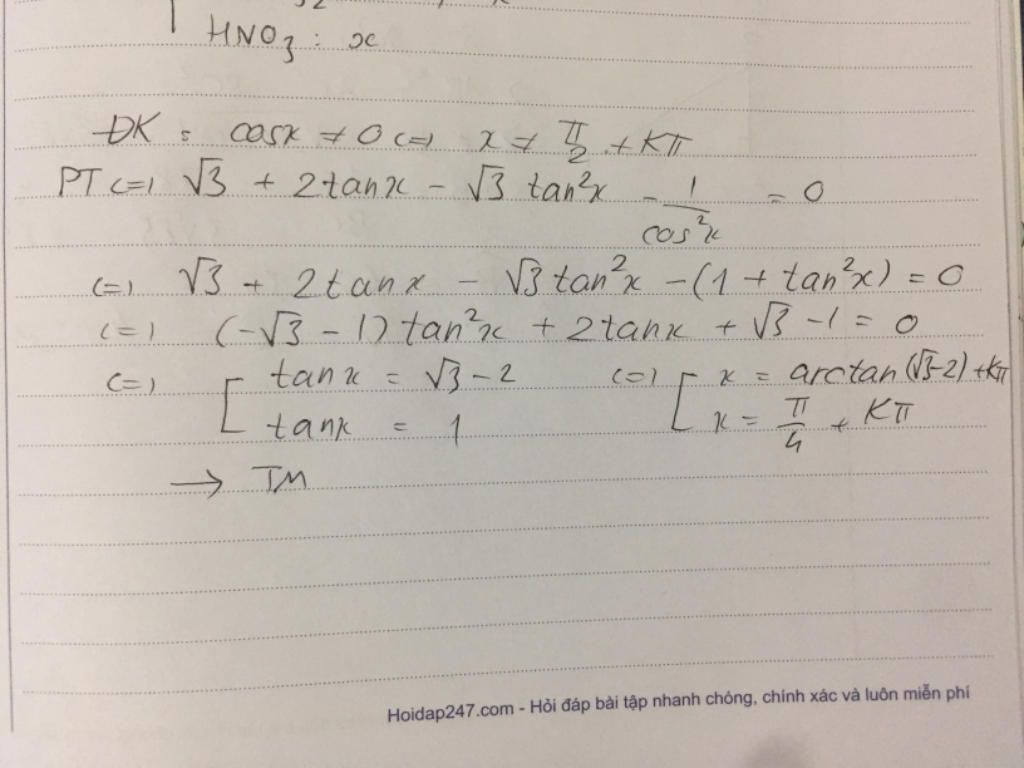 HNO3 : x
ĐK : cosx ≠ 0 (=) x ≠ π/2 + Kπ
PT (=) √3 + 2tanx - √3 tan²x - 1/cos²x = 0
(=) √3 + 2tanx - √3tan²x - (1 + tan²x) = 0
(=) (-√3 - 1)tan²x + 2tanx + √3 - 1 = 0
(=) [ tanx = √3 - 2 (=) [ x = arctan(√3-2) + Kπ
tanx = 1 x = π/4 + Kπ
→ TM
Hoidap247.com - Hỏi đáp bài tập nhanh chóng, chính xác và luôn miễn phí